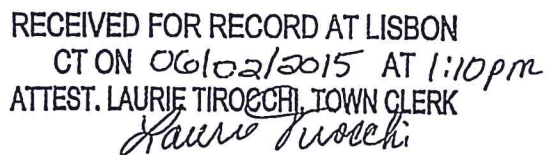 RECEIVED FOR RECORD AT LISBON
CT ON 06/02/2015 AT 1:10pm
ATTEST. LAURIE TIROCCHI, TOWN CLERK
Laurie Tirocchi